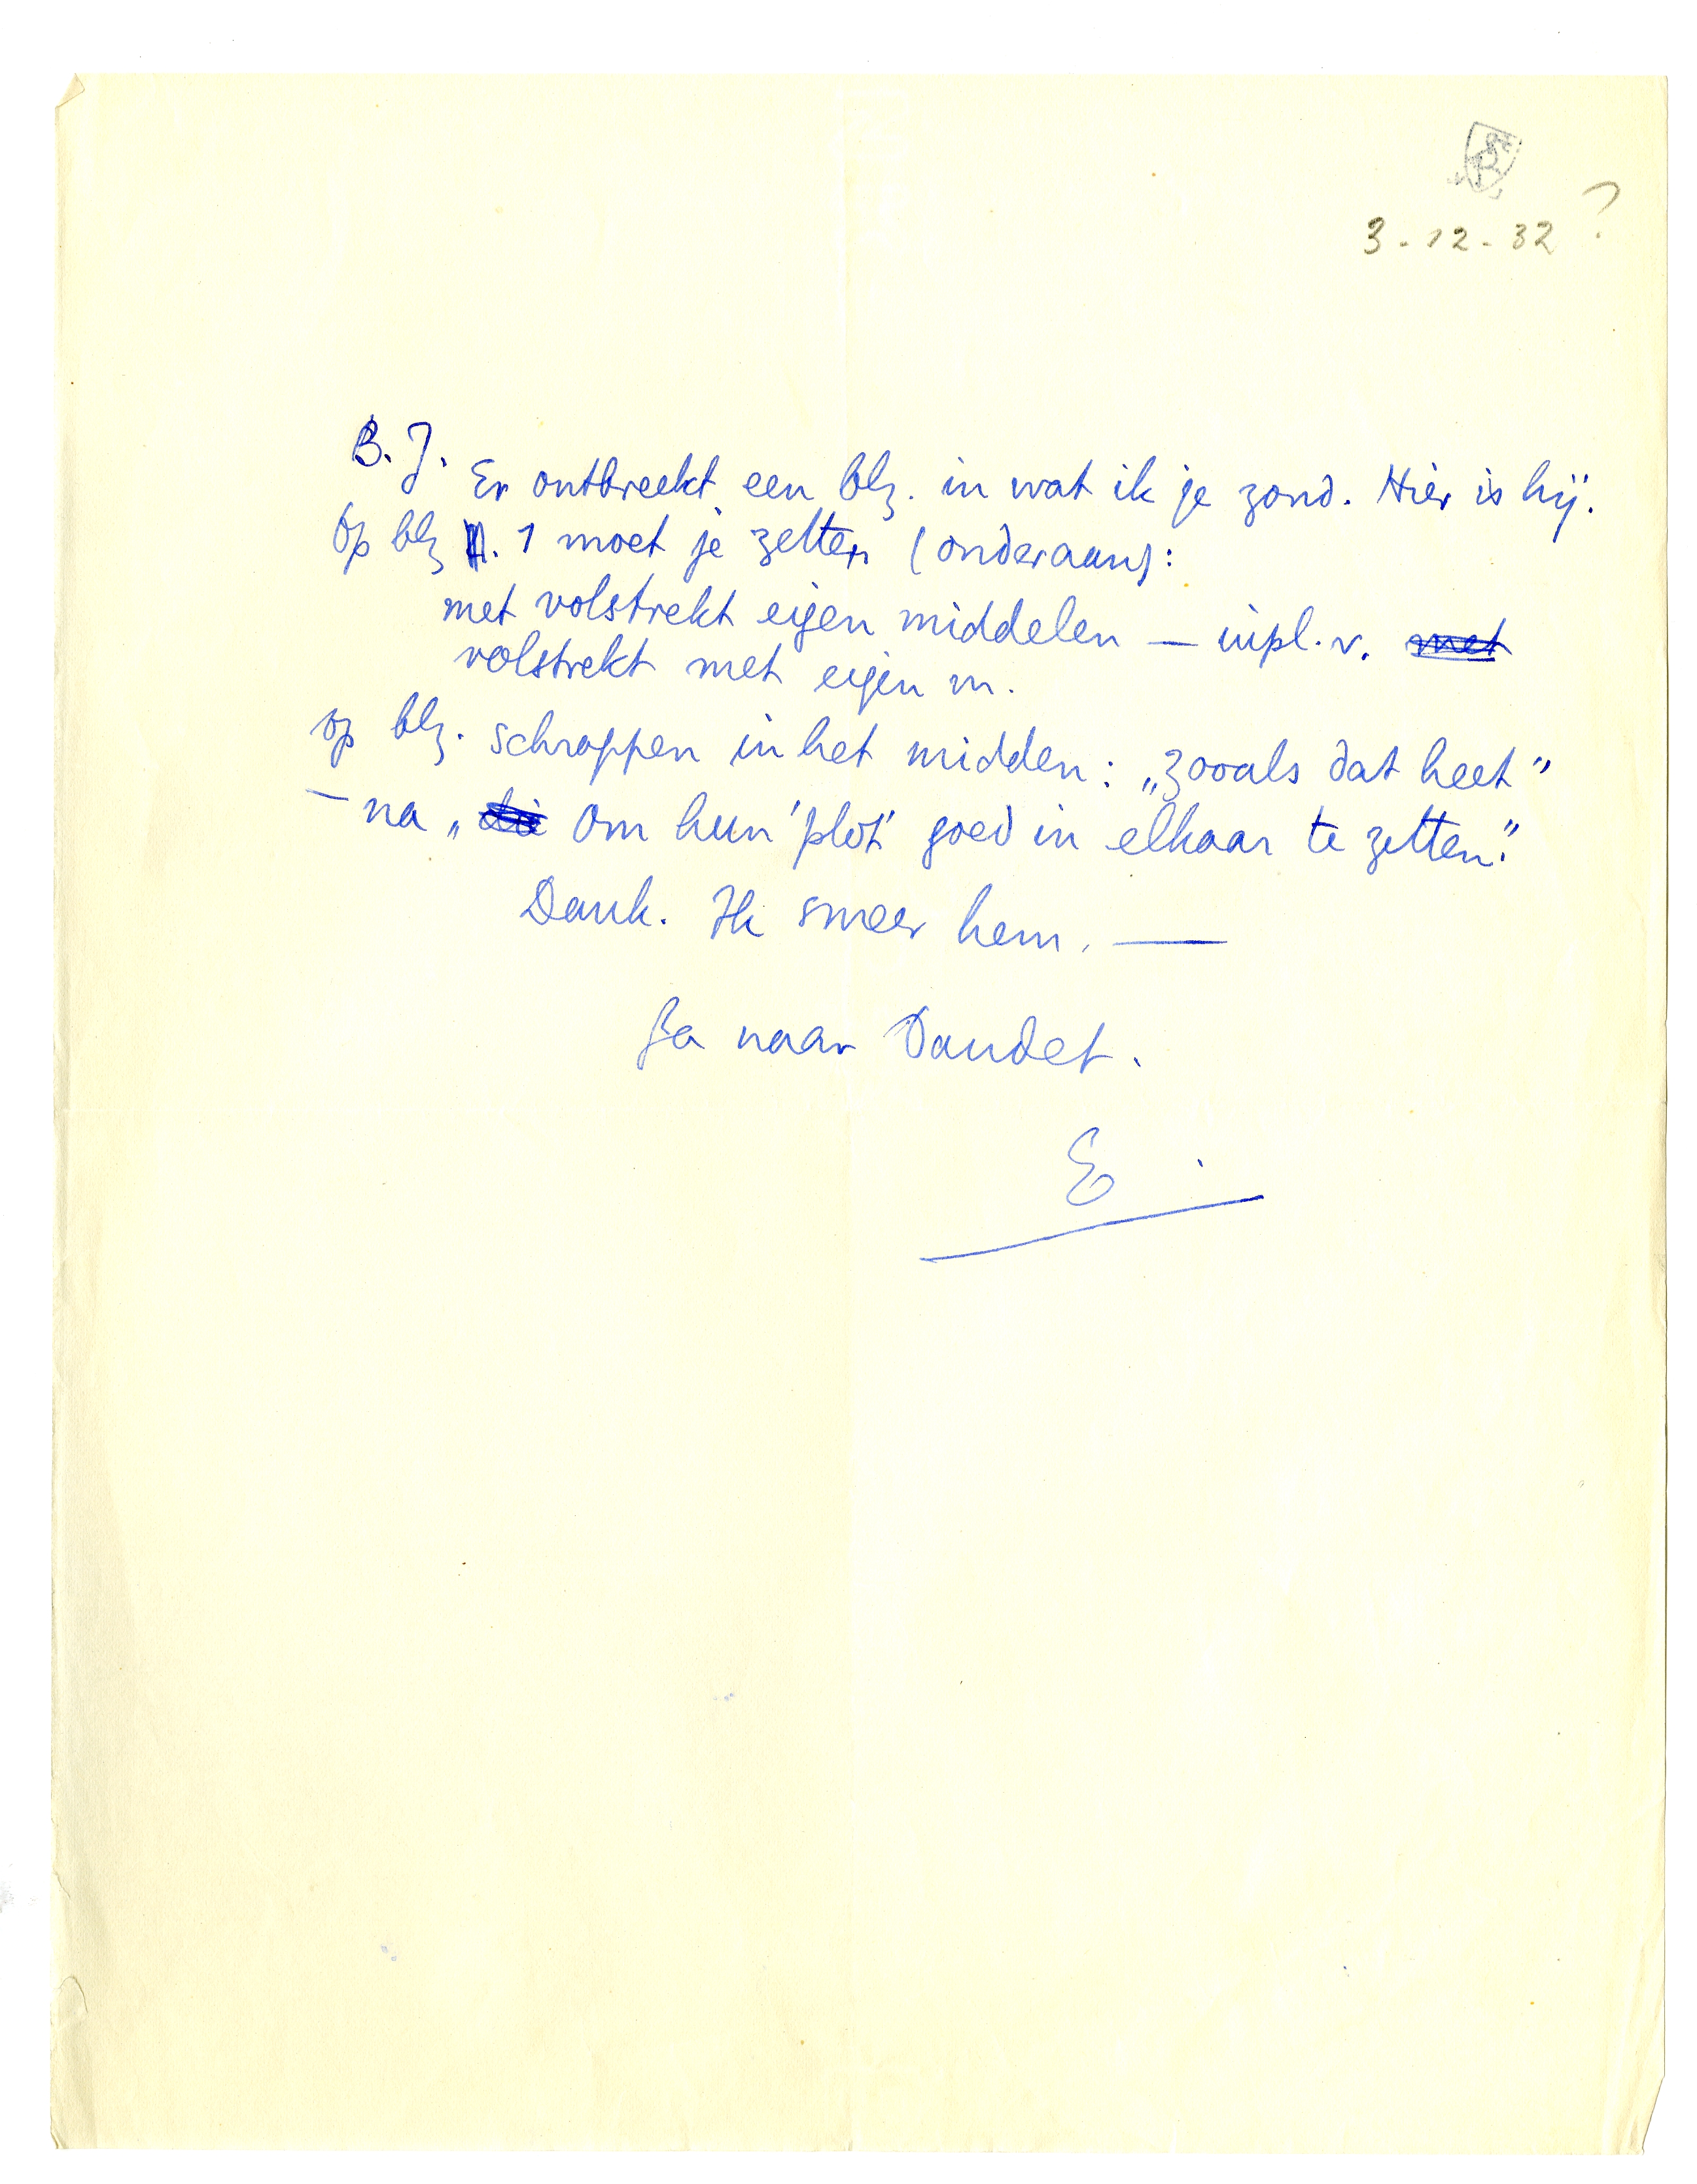 3-12-32 ?
B. J.
Er ontbreekt een blz. in wat ik je zond. Hier is hij.
Op blz. 1 moet je zetten (onderaan):
met volstrekt eigen middelen — inpl. v. met
volstrekt met eigen m.
op blz. schrappen in het midden: „zooals dat heet"
— na „ Om hun 'plot' goed in elkaar te zetten."
Dank. Ik smeer hem. —
Ga naar Daudet.
E